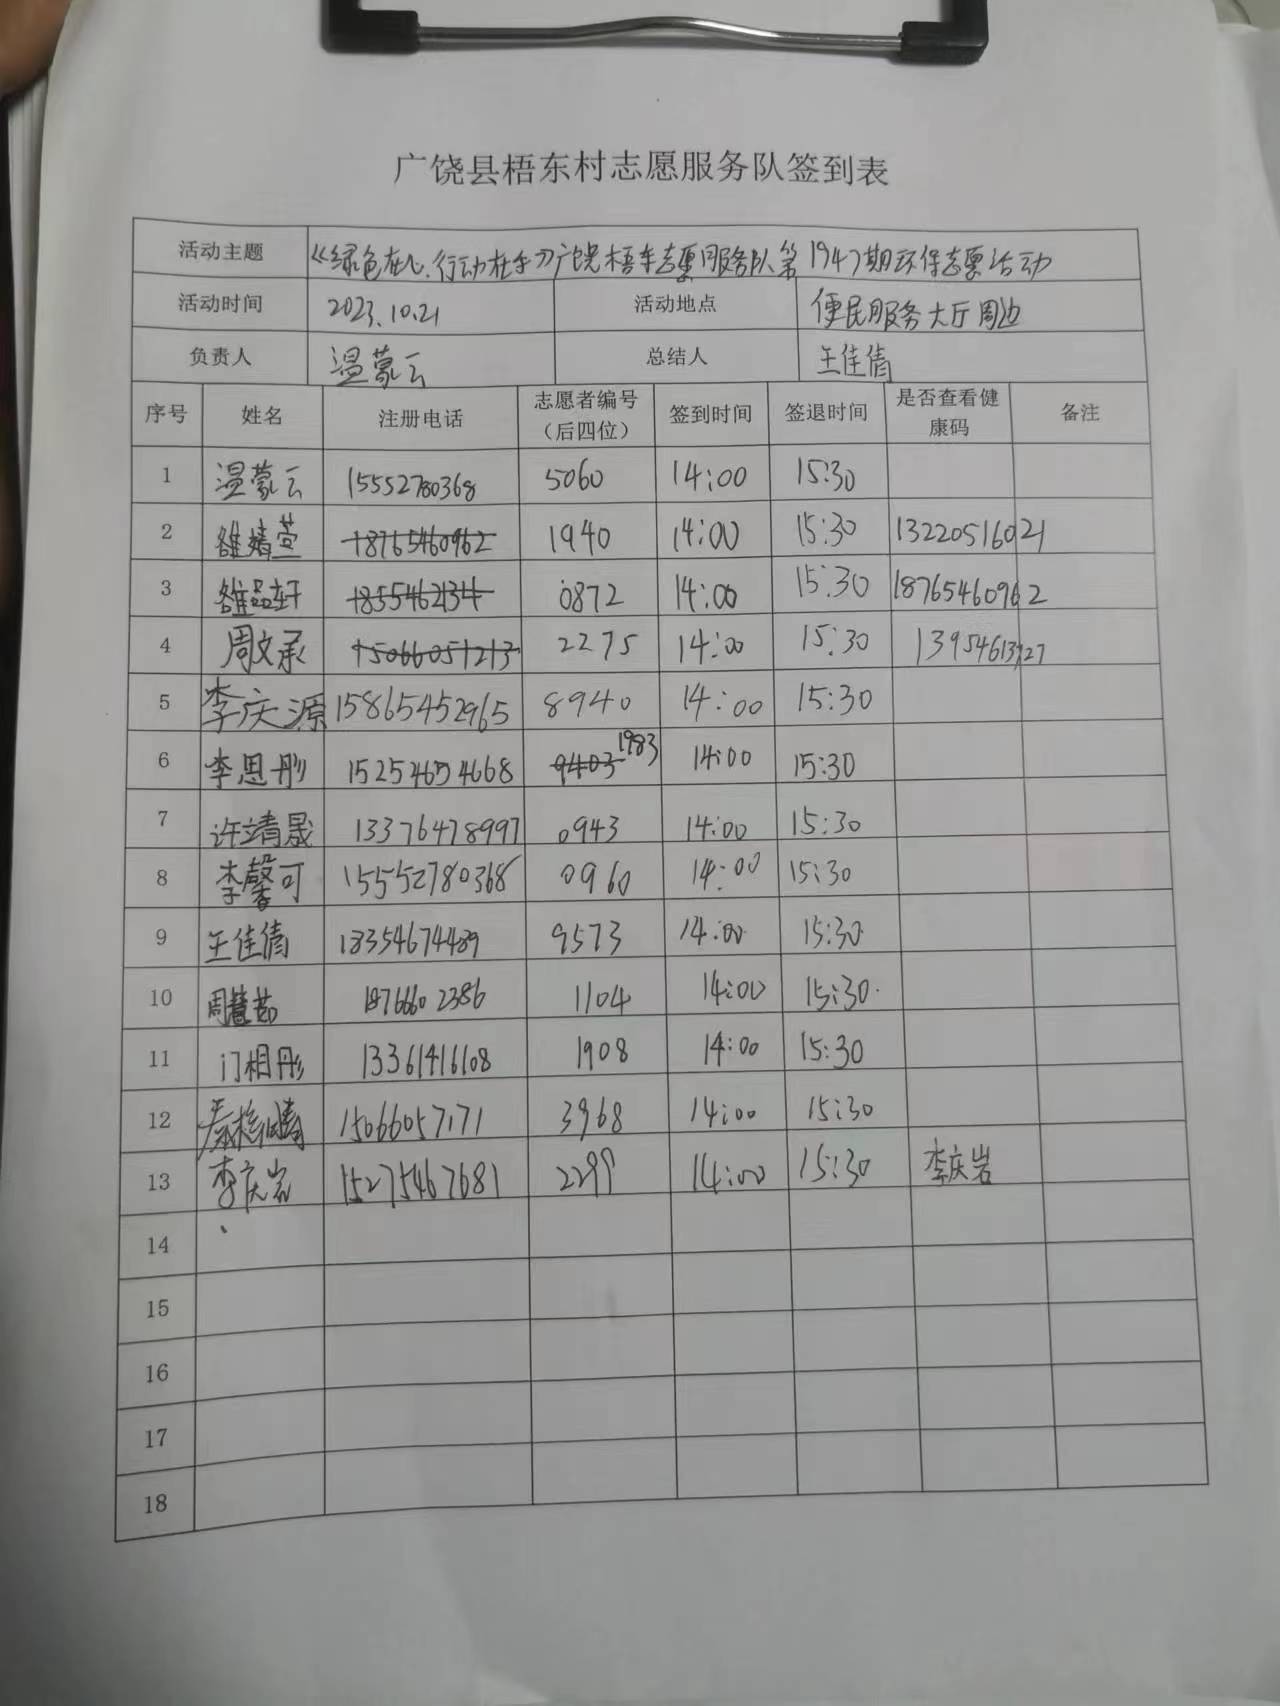 广饶县梧东村志愿服务队签到表
活动主题 《绿色在心.行动在手》广饶梧东志愿服务队第1947期环保志愿活动
活动时间 2023.10.21 活动地点 便民服务大厅周边
负责人 温蒙云 总结人 王佳倩
序号 姓名 注册电话 志愿者编号（后四位） 签到时间 签退时间 是否查看健康码 备注
1 温蒙云 15552780368 5060 14:00 15:30
2 雒婧萱 18765460962 1940 14:00 15:30 13220516021
3 雒品轩 1855462134 0872 14:00 15:30 18765460962
4 周文承 15066051213 2275 14:00 15:30 13954613727
5 李庆源 15865452965 8940 14:00 15:30
6 李思彤 15254654668 9403 1983 14:00 15:30
7 许靖晟 13376478997 0943 14:00 15:30
8 李馨可 15552780368 0960 14:00 15:30
9 王佳倩 18354674489 9573 14:00 15:30
10 周慧茹 18766602386 1104 14:00 15:30
11 门相彤 13361416108 1908 14:00 15:30
12 15066057171 3968 14:00 15:30
13 李庆岩 15275467681 2299 14:00 15:30 李庆岩
14
15
16
17
18